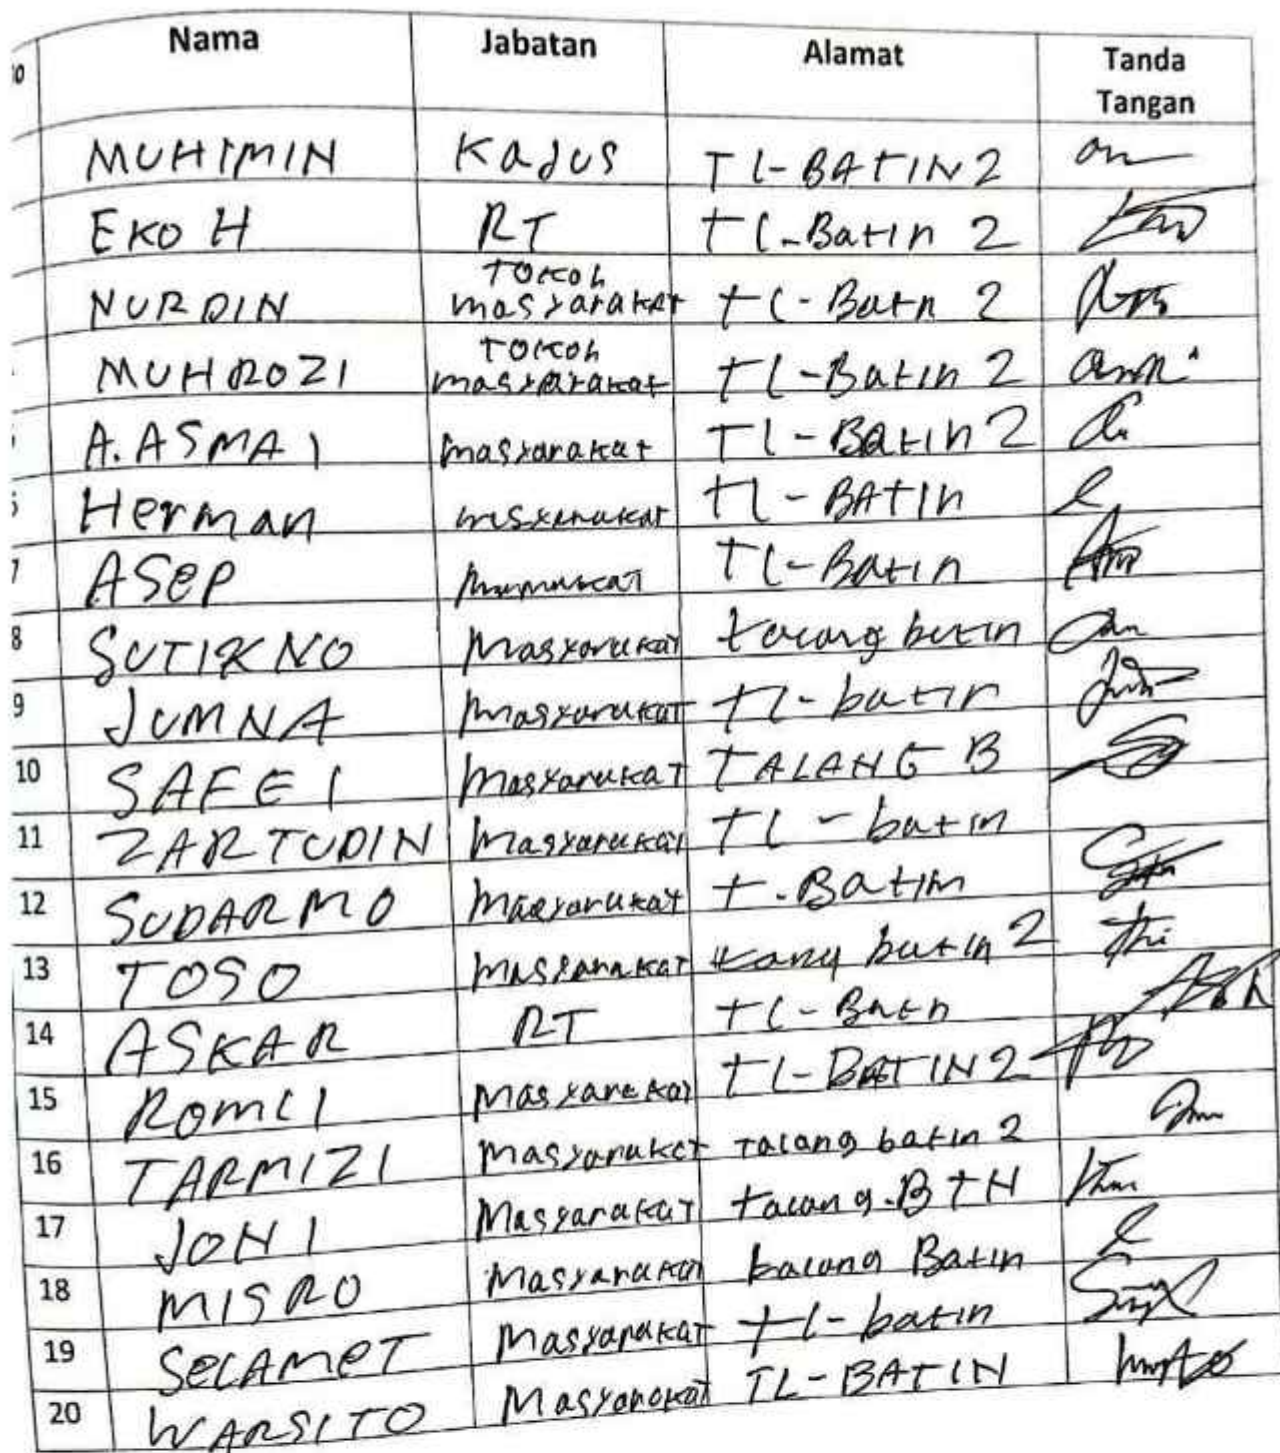 Nama Jabatan Alamat Tanda
Tangan
MUHIMIN Kadus TL-BATIN 2
EKO H RT TL-Batin 2
NURDIN Tokoh masyarakat TL-Batn 2
MUHROZI Tokoh masyarakat TL-Batin 2
A. ASMAI masyarakat TL-Batin 2
Herman TL-BATIN
7 ASep TL-Batin
8 SUTIKNO Masyarakat talang batin
9 JUMNA Masyarakat tl-batin
10 SAFEI Masyarakat TALANG B
11 ZARTUDIN Masyarakat TL-batin
12 SUDARMO Masyarakat T.Batin
13 TOSO Masyarakat batin 2
14 ASKAR RT TL-Batn
15 ROMLI Masyarakat TL-BATIN 2
16 TARMIZI Masyarakat Talang batin 2
17 JONI Masyarakat talang.BTN
18 MISRO Masyarakat talang Batin
19 SeLAMeT Masyarakat TL-batin
20 WARSITO Masyarakat TL-BATIN